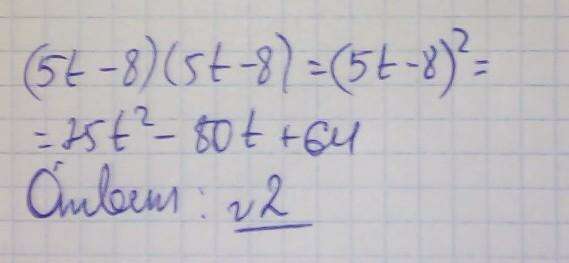 (5t-8)(5t-8)=(5t-8)²=
=25t²-80t+64
Ответ: √2